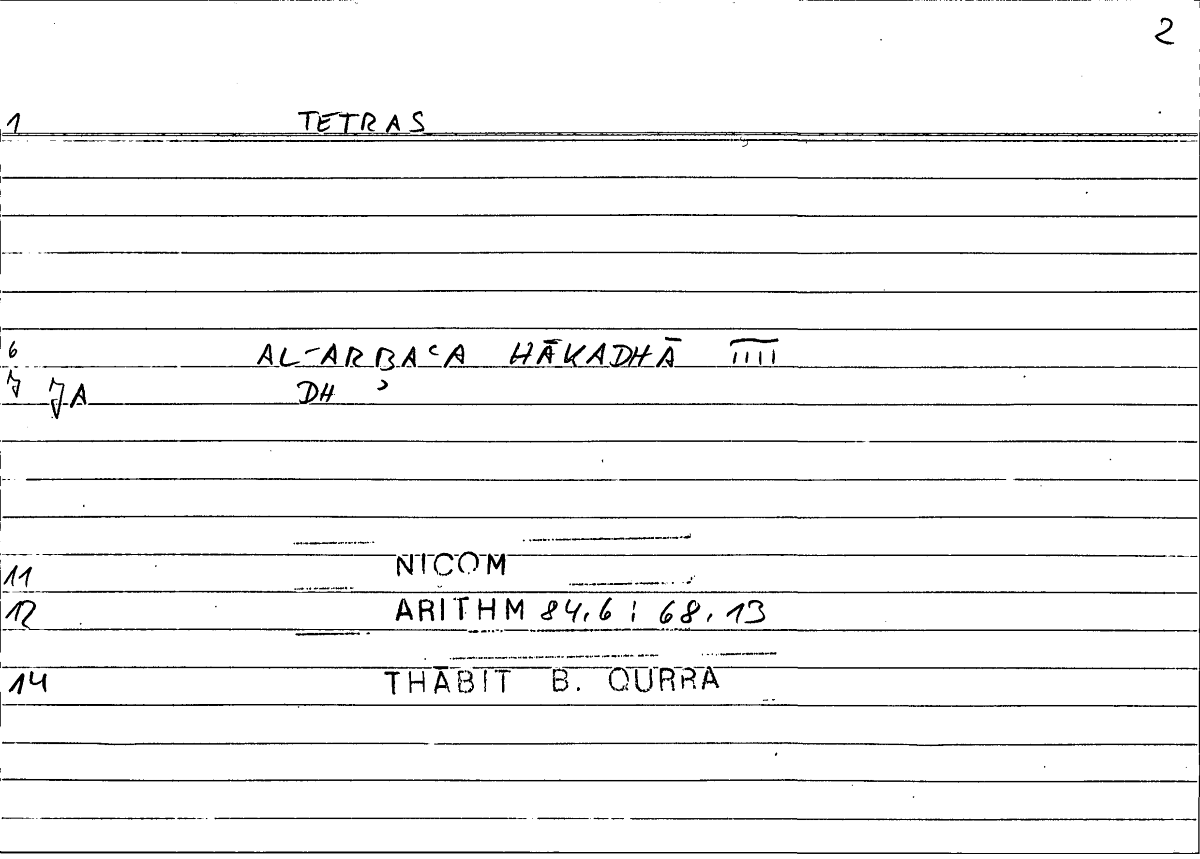 2
1 TETRAS
6 AL-ARBAʿA HĀKADHĀ IIII
7 JA DH ʾ
11 NICOM
12 ARITHM 84,6 ; 68,13
14 THĀBIT B. QURRA